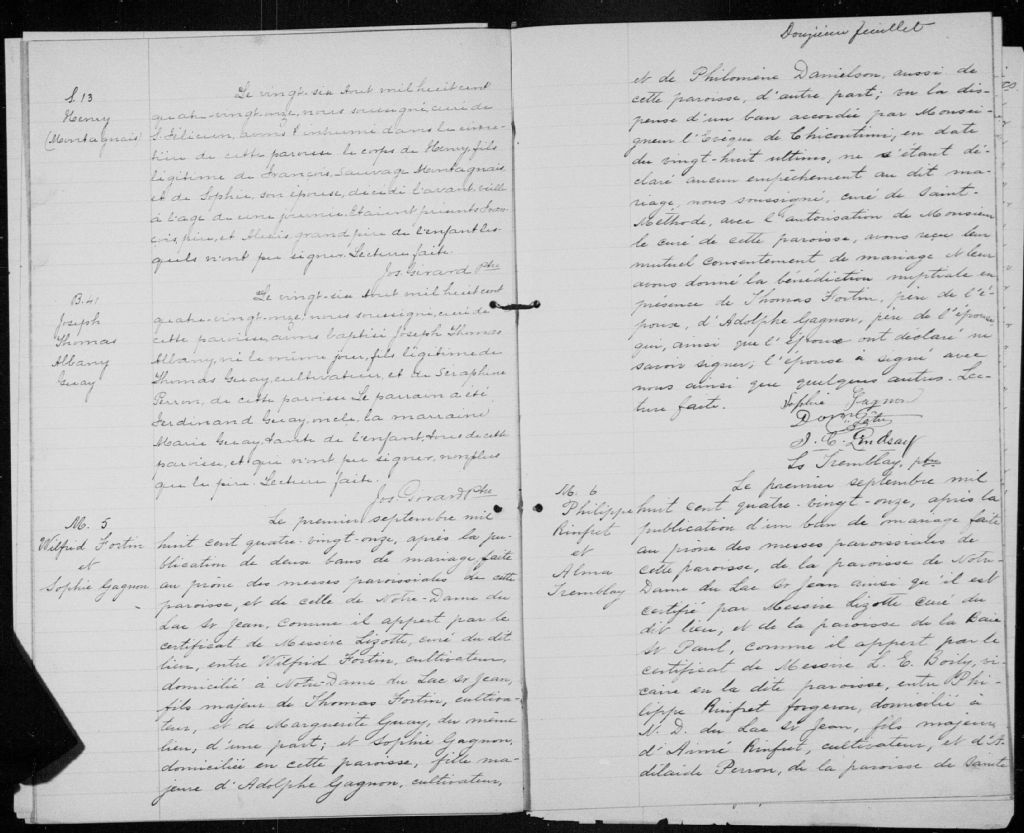 S. 13
Henry
(Montagnais)
Le vingt-six Aout mil huit cent
quatre-vingt-onze, nous soussigné, curé de
S. Félicien, avons inhumé dans le cime-
tière de cette paroisse le corps de Henry, fils
légitime de François, Sauvage Montagnais
et de Sophie, son épouse, décédé l'avant-veille
à l'age de une journée. Etaient présents Fran-
cois, père, et Alexis, grand père de l'enfant les-
quels n'ont pu signer. Lecture faite.
Jos. Girard Ptre
B. 41
Joseph
Thomas
Albany
Guay
Le vingt-six Aout mil huit cent
quatre-vingt-onze, nous soussigné, curé de
cette paroisse, avons baptisé Joseph Thomas
Albany, né le même jour, fils légitime de
Thomas Guay, cultivateur, et de Séraphine
Perron, de cette paroisse. Le parrain a été
Ferdinand Guay, oncle, la marraine
Marie Guay, tante de l'enfant, tous de cette
paroisse, et qui n'ont pu signer, non plus
que le père. Lecture faite.
Jos. Girard Ptre
M. 5
Wilfrid Fortin
et
Sophie Gagnon
Le premier septembre mil
huit cent quatre-vingt-onze, après la pu-
blication de deux bans de mariage faite
au prône des messes paroissiales de cette
paroisse, et de celle de Notre-Dame du
Lac St Jean, comme il appert par le
certificat de Messire Lizotte, curé du dit
lieu, entre Wilfrid Fortin, cultivateur,
domicilié à Notre-Dame du Lac St Jean,
fils majeur de Thomas Fortin, cultiva-
teur, et de Marguerite Guay, du même
lieu, d'une part; et Sophie Gagnon,
domiciliée en cette paroisse, fille ma-
jeure d'Adolphe Gagnon, cultivateur,
Douzième feuillet
et de Philomène Danielson, aussi de
cette paroisse, d'autre part; vu la dis-
pense d'un ban accordée par Monsei-
gneur l'Evêque de Chicoutimi, en date
du vingt-huit ultimo, ne s'étant dé-
claré aucun empêchement au dit ma-
riage, nous soussigné, curé de Saint-
Méthode, avec l'autorisation de Monsieur
le curé de cette paroisse, avons reçu leur
mutuel consentement de mariage et leur
avons donné la bénédiction nuptiale en
présence de Thomas Fortin, père de l'é-
poux, d'Adolphe Gagnon, père de l'épouse
qui, ainsi que l'époux ont déclaré ne
savoir signer; l'épouse à signé avec
nous ainsi que quelques autres. Lec-
ture faite.
Sophie Gagnon
J. E. Lindsay
Ls Tremblay, ptre
M. 6
Philippe
Rinfret
et
Alma
Tremblay
Le premier septembre mil
huit cent quatre-vingt-onze, après la
publication d'un ban de mariage faite
au prône des messes paroissiales de
cette paroisse, de la paroisse de Notre-
Dame du Lac St Jean ainsi qu'il est
certifié par Messire Lizotte curé du
dit lieu, et de la paroisse de la Baie
St Paul, comme il appert par le
certificat de Messire L. E. Boily, vi-
caire en la dite paroisse, entre Phi-
lippe Rinfret forgeron, domicilié à
N. D. du Lac St Jean, fils majeur
d'Aimé Rinfret, cultivateur, et d'A-
dilaide Perron, de la paroisse de Sainte